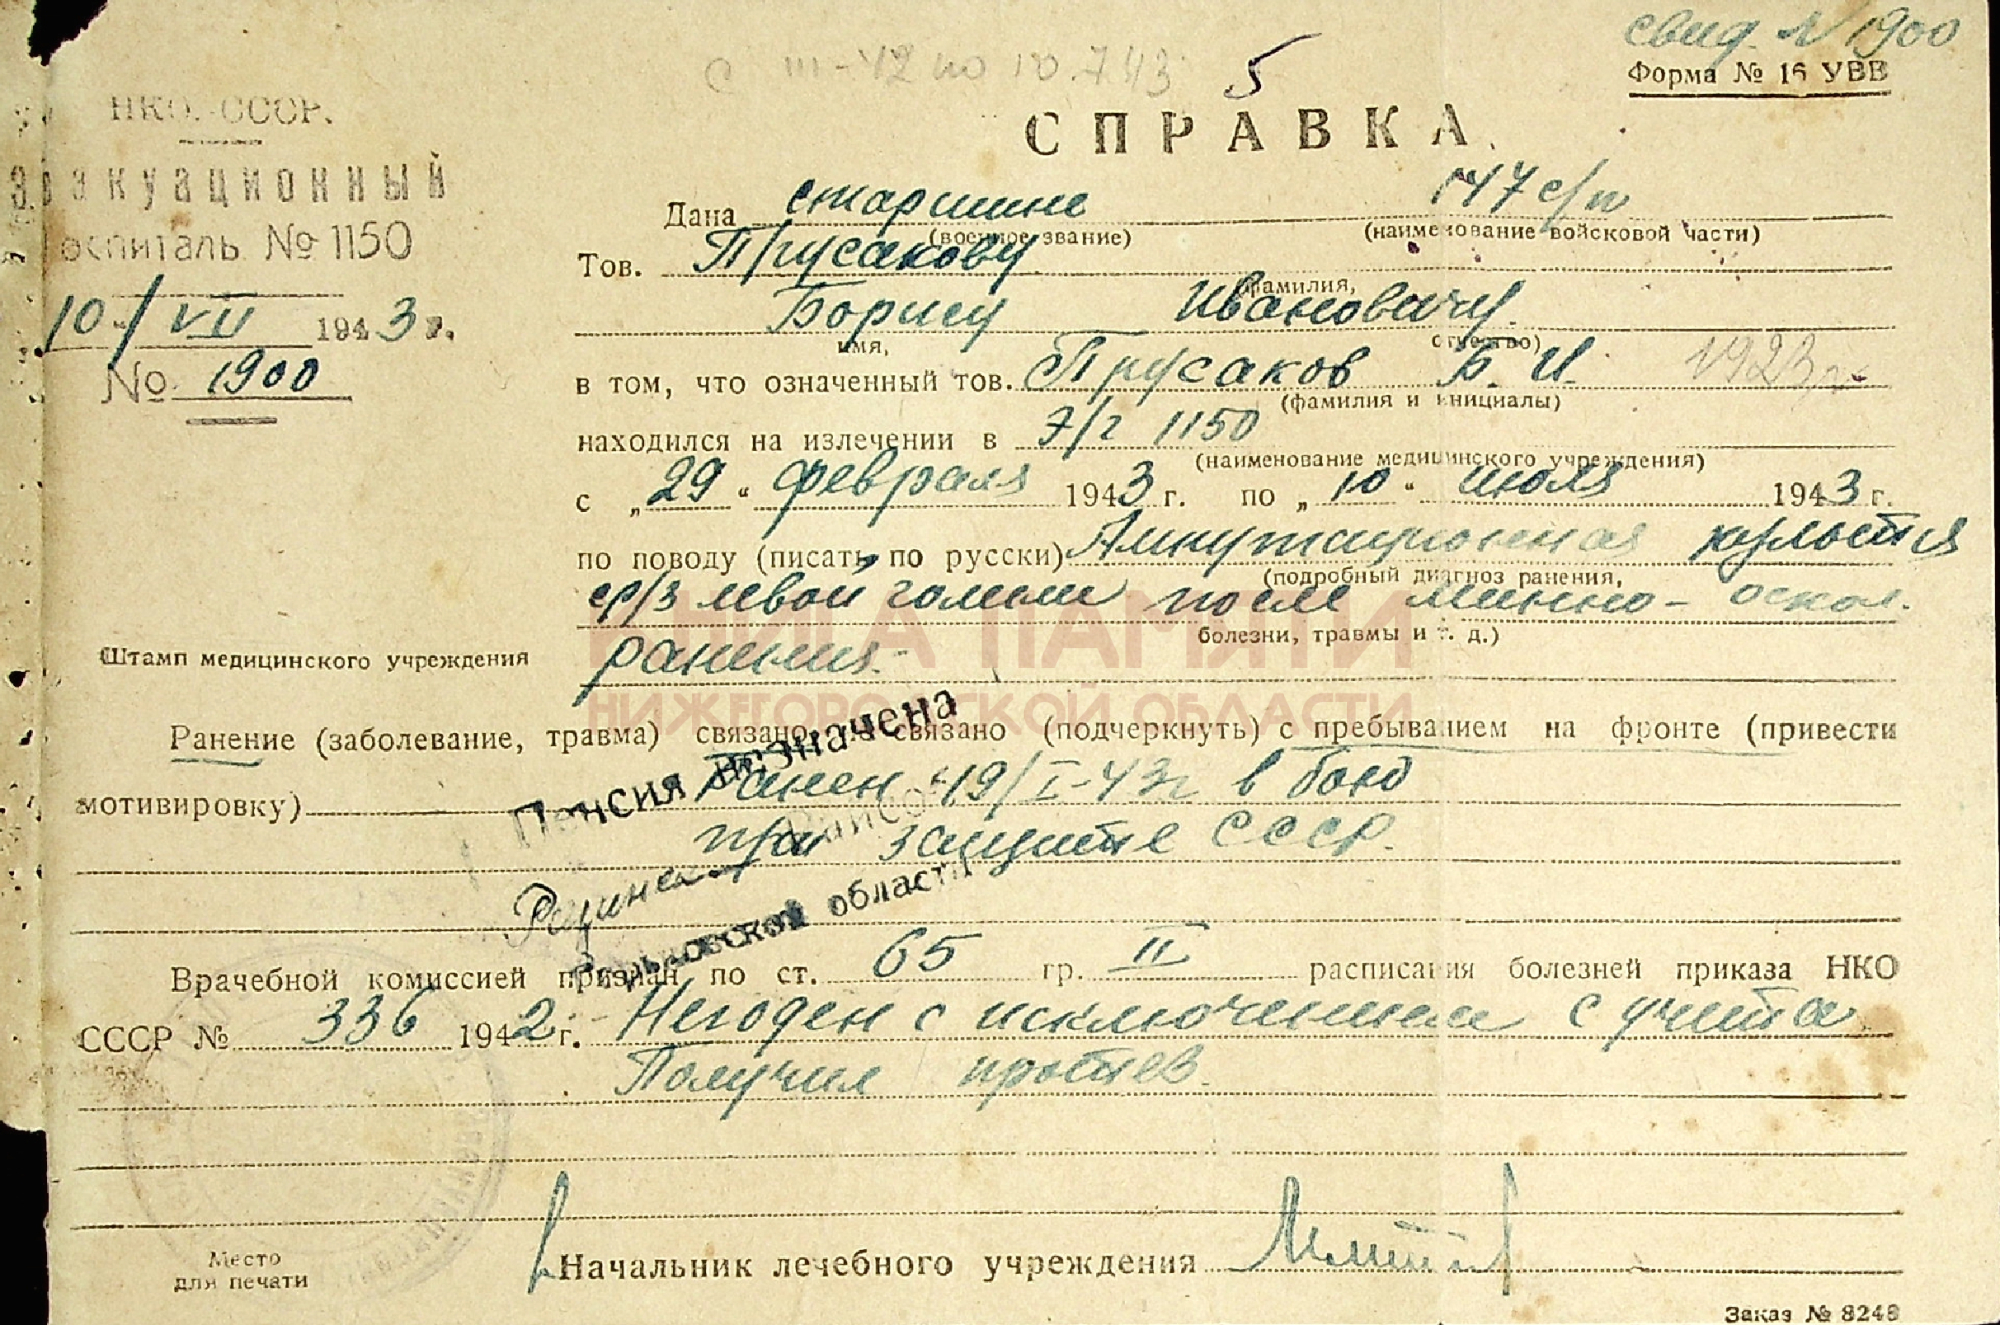 свид. № 1900
Форма № 16 УВВ
с III-42 по 10.7.43
5
СПРАВКА.
НКО. СССР.
Эвакуационный
госпиталь №1150
10/VII 1943 г.
№ 1900
Дана старшине 147 с/п
(военное звание) (наименование войсковой части)
Тов. Прусакову
фамилия,
Борису Ивановичу
имя, отчество)
в том, что означенный тов. Прусаков Б. И. 1923 г.
(фамилия и инициалы)
находился на излечении в Э/г 1150
(наименование медицинского учреждения)
с „29“ февраля 1943 г. по „10“ июля 1943 г.
по поводу (писать по русски) Ампутационная культя
(подробный диагноз ранения,
ср/з левой голени после минно-оскол.
болезни, травмы и т. д.)
ранения.
Штамп медицинского учреждения
КНИГА ПАМЯТИ
НИЖЕГОРОДСКОЙ ОБЛАСТИ
Ранение (заболевание, травма) связано, не связано (подчеркнуть) с пребыванием на фронте (привести
мотивировку) Ранен 19/I-43г в бою
при защите СССР.
Пенсия назначена
области
Врачебной комиссией признан по ст. 65 гр. II расписания болезней приказа НКО
СССР № 336 1942 г. Негоден с исключением с учета
Получил протез.
Место
для печати
Начальник лечебного учреждения
Заказ № 8248